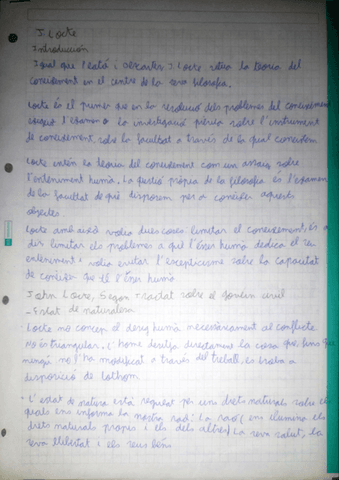 J. Locke
Introducció
Igual que Plató i Descartes J. Locke situa la teoria del
coneixement en el centre de la seva filosofia.
Locke és el primer que en la resolució dels problemes del coneixement
l'examen o la investigació prèvia sobre l'instrument
de coneixement, sobre la facultat a través de la qual coneixem
Locke entén la teoria del coneixement com un assaig sobre
l'enteniment humà. La qüestió pròpia de la filosofia és l'examen
de la facultat de què disposem per a conèixer aquests
objectes
Locke amb això volia dues coses limitar el coneixement, és a
dir limitar els problemes a què l'ésser humà dedica el seu
enteniment i volia evitar l'escepticisme sobre la capacitat
de conèixer que té l'ésser humà
John Locke, Segon tractat sobre el govern civil
- Estat de naturalesa
Locke no concep el desig humà necessàriament al conflicte
No és triangular, l'home desitja directament la cosa que, fins que
ningú no l'ha modificat a través del treball, es troba a
disposició de tothom
· L'estat de natura està regulat per uns drets naturals sobre els
quals ens informa la nostra raó: La raó (ens il·lumina els
drets naturals propis i els dels altres) La seva salut, la
seva llibertat i els seus béns